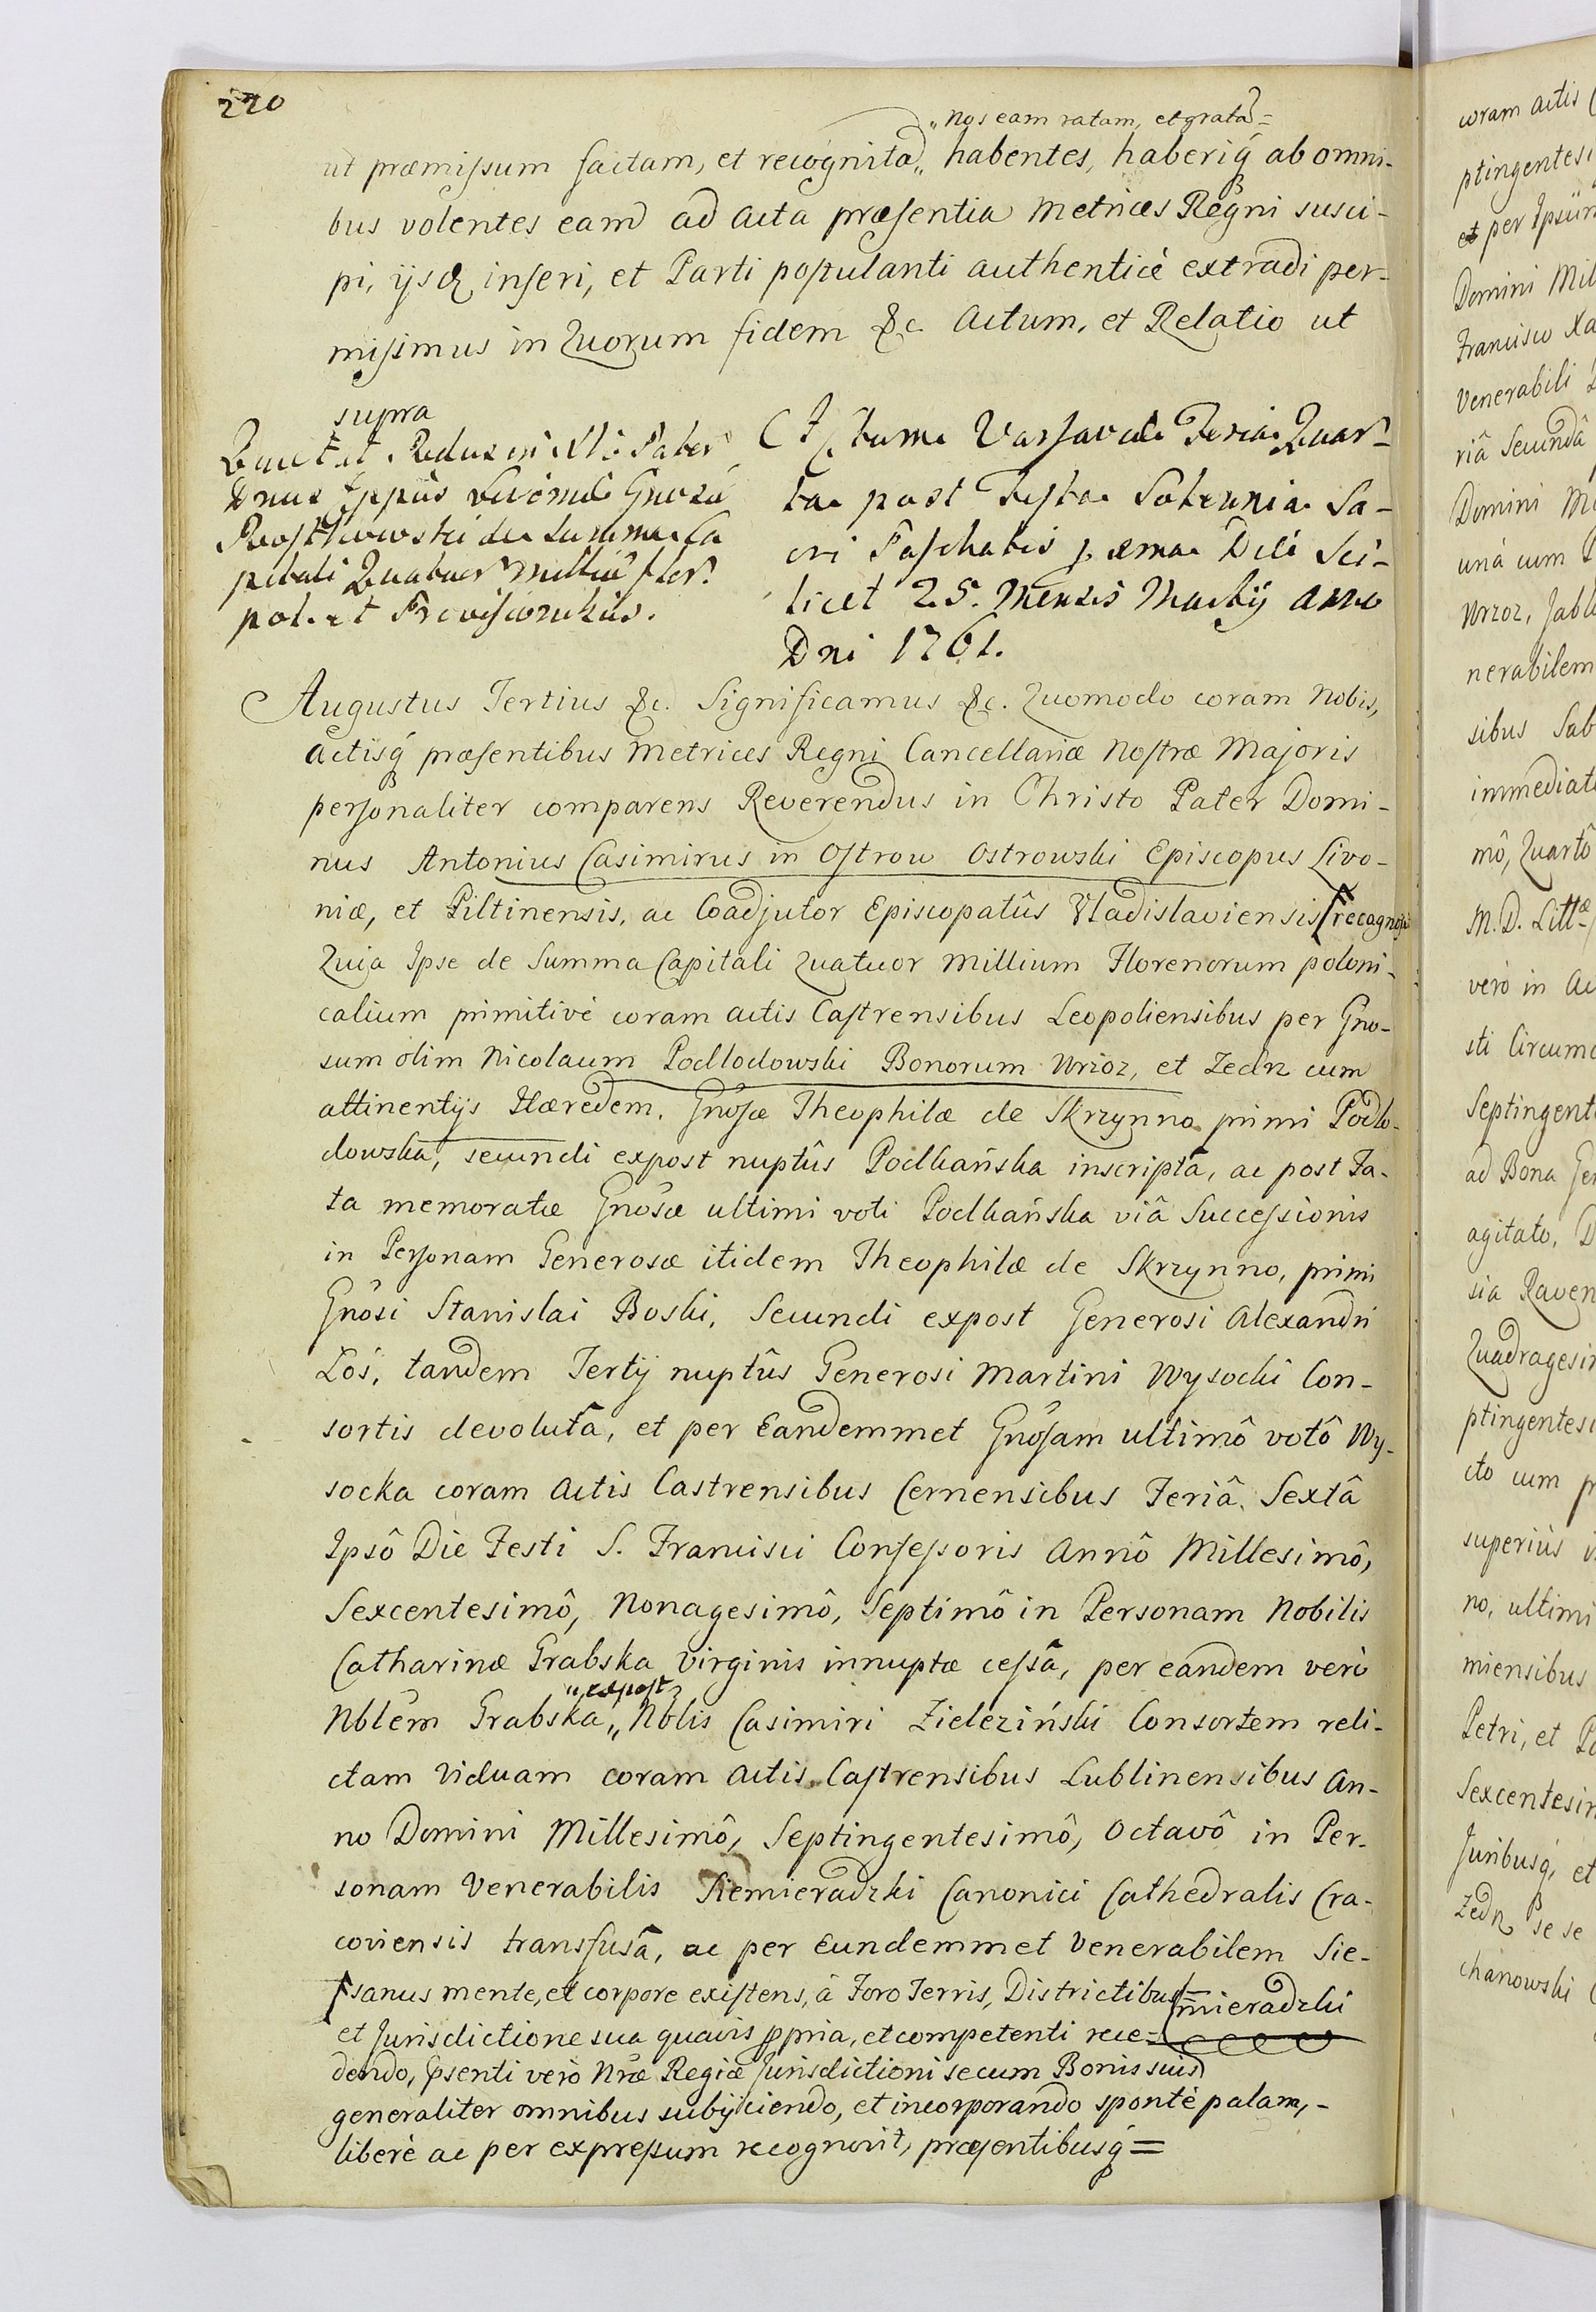 220
„Nos eam ratam, et gratã=
ut præmissum factam, et recognitã„ habentes, haberiq́ ab omni-
bus volentes eam ad Acta præsentia Metrices Regni susci-
pi, ijsq́ inseri, et Parti postulanti authenticè extradi per-
misimus in Quorum fidem &c. Actum, et Relatio ut
supra
Quietat Redus in Xto Pater
Dnus Eppus Livoniæ Gnosū
de Summa Ca
pitali Quatuor milliū flor.
pol. et Provisionibus.
Actum Varsaviæ Feria Quar-
ta post Festa Solennia Sa-
cri Paschatis Die sci-
licet 25. Mensis Martij Anno
Dni 1761.
Augustus Tertius &c. Significamus &c. Quomodo coram Nobis,
Actisq́ præsentibus Metrices Regni Cancellariæ Nostræ Majoris
personaliter comparens Reverendus in Christo Pater Domi-
nus Antonius Casimirus in Ostrow Ostrowski Episcopus Livo-
niæ, et Piltinensis, ac Coadjutor Episcopatûs Vladislaviensis recognovit
Quia Ipse de Summa Capitali Quatuor Millium Florenorum poloni-
calium primitivè coram Actis Castrensibus Leopoliensibus per Gno-
sum olim Nicolaum Podlodowski Bonorum Wrzoz, et Zedn cum
attinentijs Hæredem, Gnosæ Theophilæ de Skrzynno primi Podlo-
dowska, secundi expost nuptûs Podkańska inscriptâ, ac post Fa-
ta memoratæ Gnosæ ultimi voti Podkańska viâ Successionis
in Personam Generosæ itidem Theophilæ de Skrzynno, primi
Gnosi Stanislai Boski, Secundi expost Generosi Alexandri
Łoś, tandem Tertij nuptûs Generosi Martini Wysocki Con-
sortis devolutâ, et per Eandemmet Gnosam ultimô votô Wy-
socka coram Actis Castrensibus Cernensibus Feriâ Sextâ
Ipsô Die Festi S. Francisci Confessoris Annô Millesimô,
Sexcentesimô, Nonagesimô, Septimô in Personam Nobilis
Catharinæ Grabska Virginis innuptæ cessâ, per eandem verò
„expost
Nblem Grabska„ Nblis Casimiri Zieleziński Consortem reli-
ctam Viduam coram Actis Castrensibus Lublinensibus An-
no Domini Millesimô, Septingentesimô, Octavô in Per-
sonam Venerabilis Siemieradzki Canonici Cathedralis Cra-
coviensis transfusâ, ac per Eundemmet Venerabilem Sie-
mieradzki
sanus mente, et corpore existens, à Foro Terris, Districtibus
et Jurisdictione sua quavis ppria, et competenti rece-
dendo, psenti verò Nræ Regiæ Jurisdictioni se cum Bonis suis
generaliter omnibus subijciendo, et incorporando spontè palam,-
liberè ac per expressum recognovit, præsentibusq́=
coram Actis
ptingentesi
et per Ipsum
Domini Mil
Francisco Xa
Venerabili
riâ Secundâ
Domini Mi
unà cum P
Wrzoz, Jabl
nerabilem
sibus Sab
immediat
mô, Quartô
M.D. Littæ
verò in Ac
sti Circumc
Septingent
ad Bona Gen
agitato, D
sia Raven
Quadragesim
ptingentesi
cto cum p
superiùs
no, ultimi
miensibus
Petri, et P
Sexcentesim
Juribusq́, et
Zedn se se
chanowski